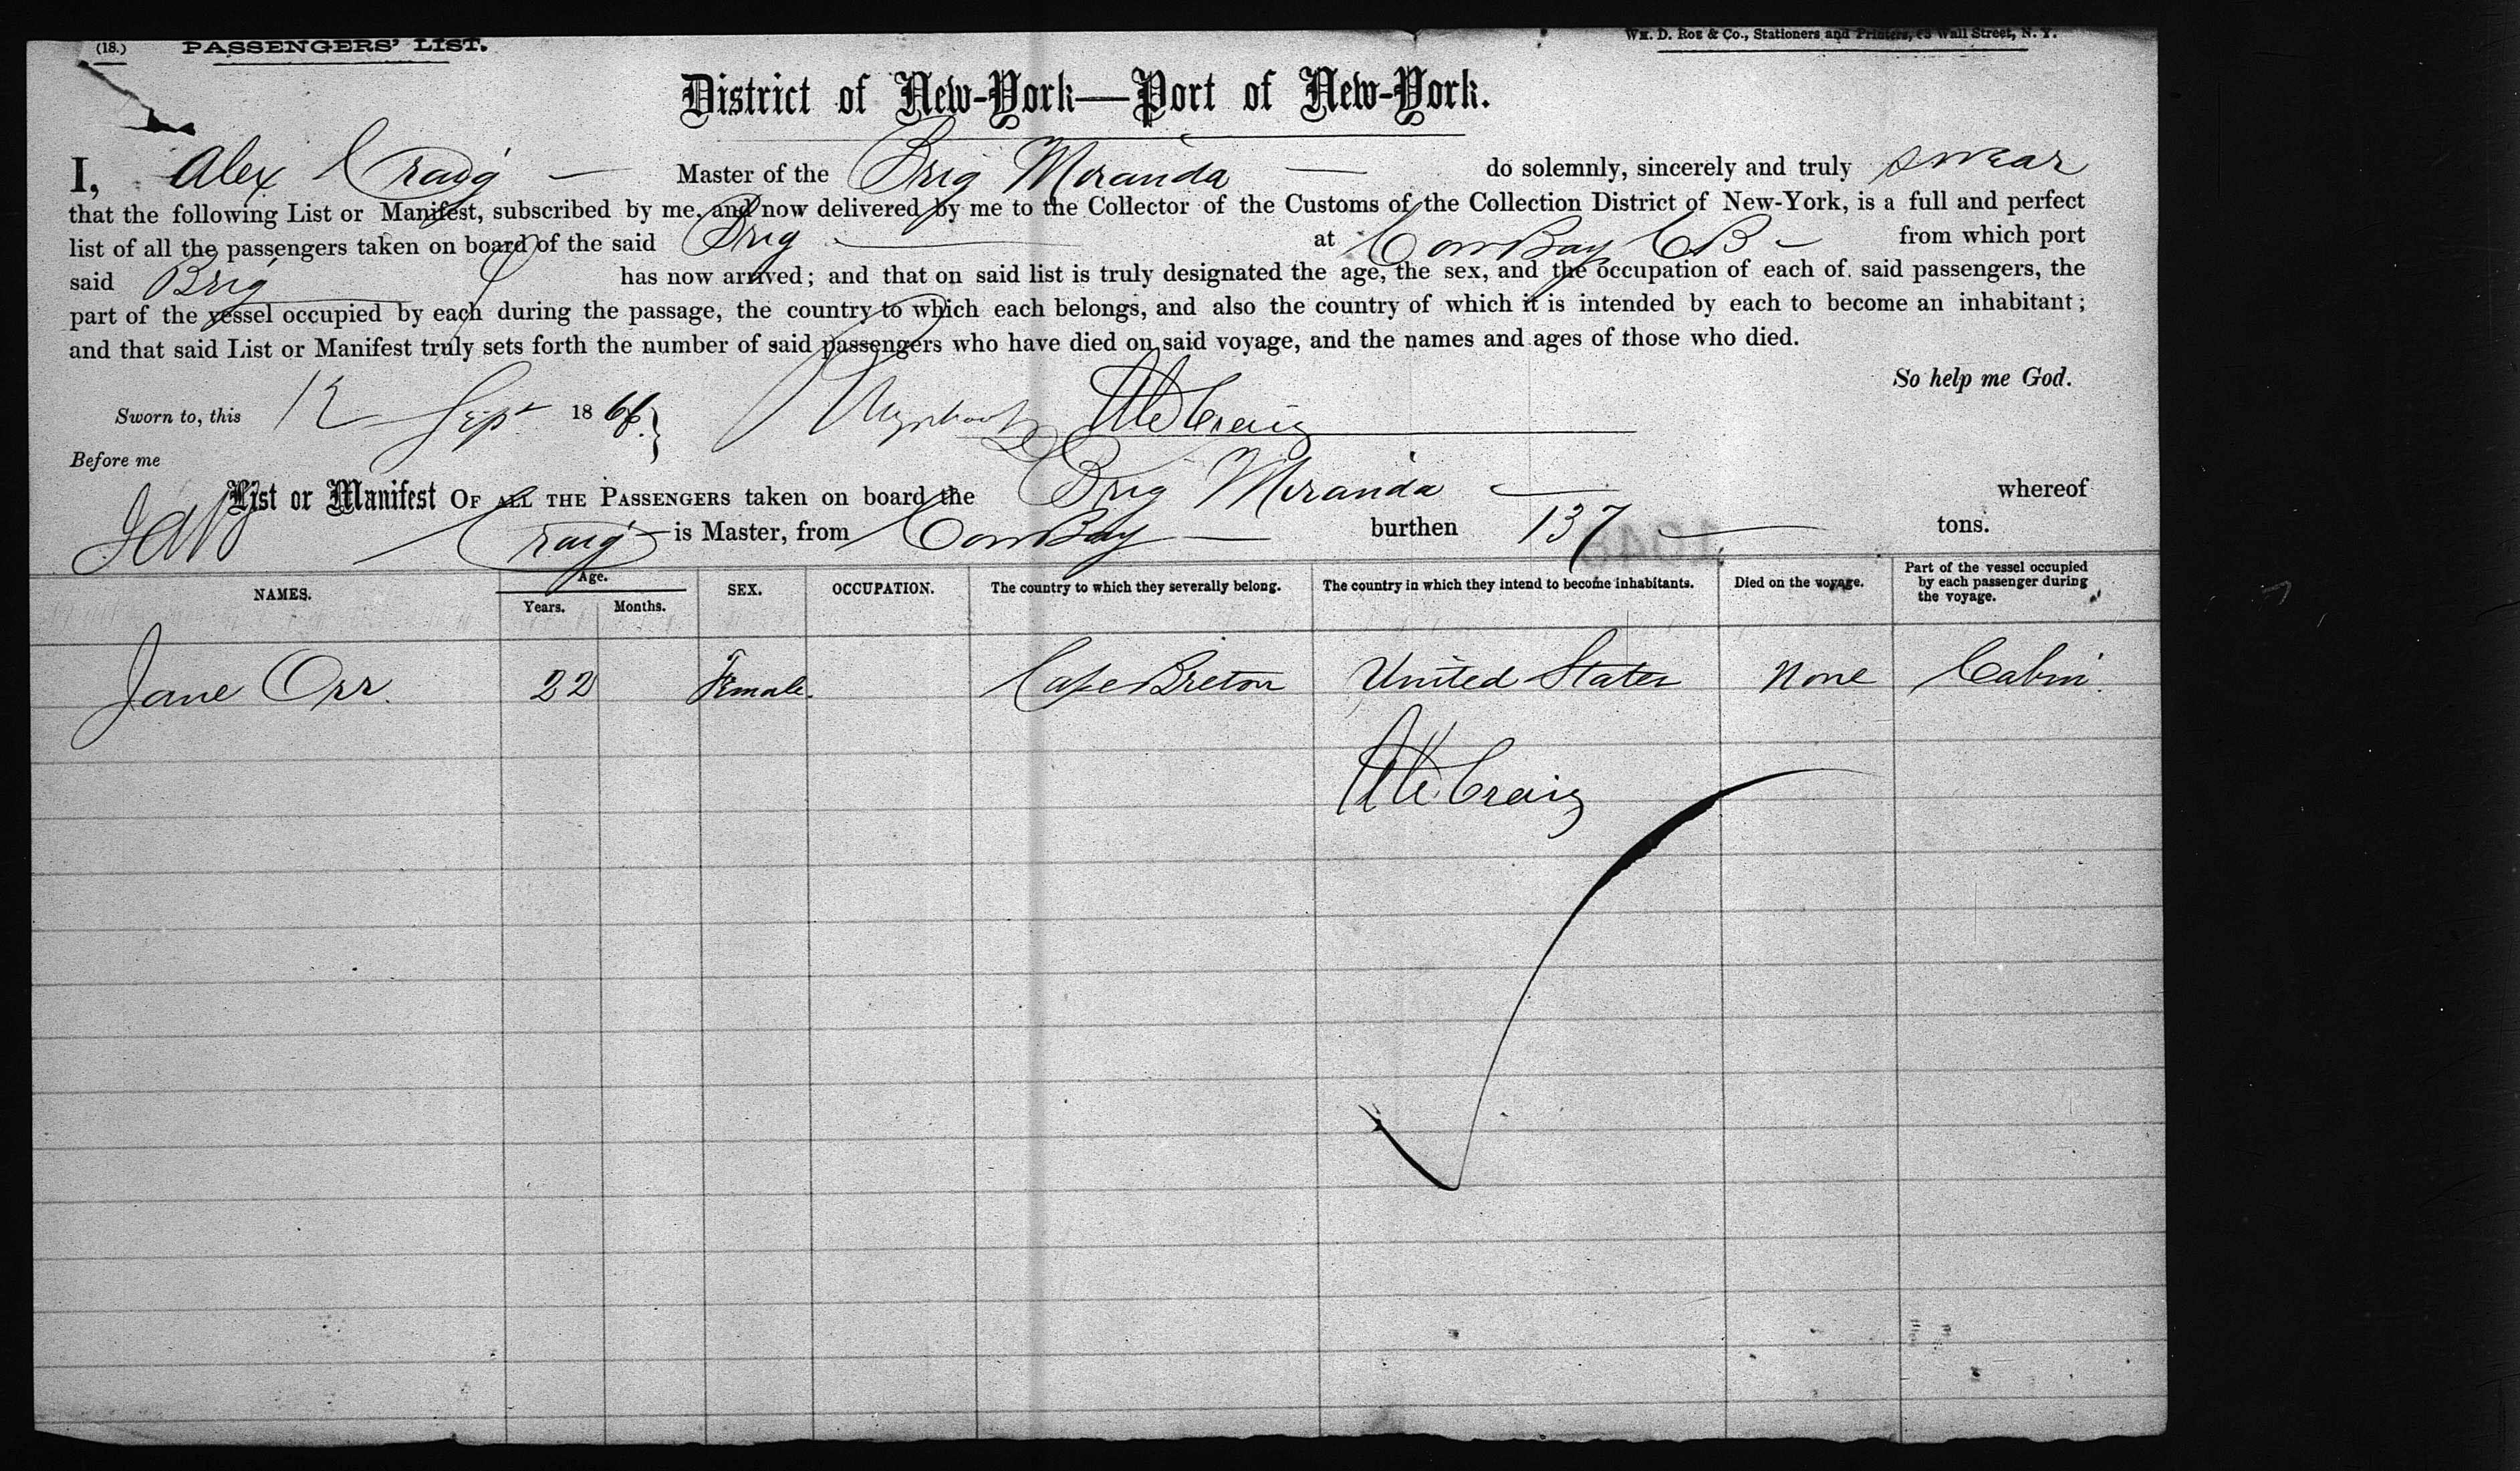 (18.) PASSENGERS' LIST. Wm. D. Roe & Co., Stationers and Printers, 63 Wall Street, N. Y.
District of New-York—Port of New-York.
I, Alex Craig — Master of the Brig Miranda — do solemnly, sincerely and truly swear
that the following List or Manifest, subscribed by me, and now delivered by me to the Collector of the Customs of the Collection District of New-York, is a full and perfect
list of all the passengers taken on board of the said Brig — at Cow Bay CB — from which port
said Brig has now arrived; and that on said list is truly designated the age, the sex, and the occupation of each of said passengers, the
part of the vessel occupied by each during the passage, the country to which each belongs, and also the country of which it is intended by each to become an inhabitant;
and that said List or Manifest truly sets forth the number of said passengers who have died on said voyage, and the names and ages of those who died.
So help me God.
Sworn to, this 12 Sept 1866. } Alex Craig
Before me
List or Manifest OF ALL THE PASSENGERS taken on board the Brig Miranda — whereof
Craig — is Master, from Cow Bay — burthen 137 — tons.
NAMES. Age. Years. Months. SEX. OCCUPATION. The country to which they severally belong. The country in which they intend to become inhabitants. Died on the voyage. Part of the vessel occupied by each passenger during the voyage.
Jane Orr. 22 Female. Cape Breton United States None Cabin.
Alex Craig